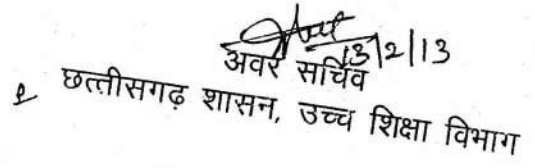 13/2/13
अवर सचिव
छत्तीसगढ़ शासन, उच्च शिक्षा विभाग